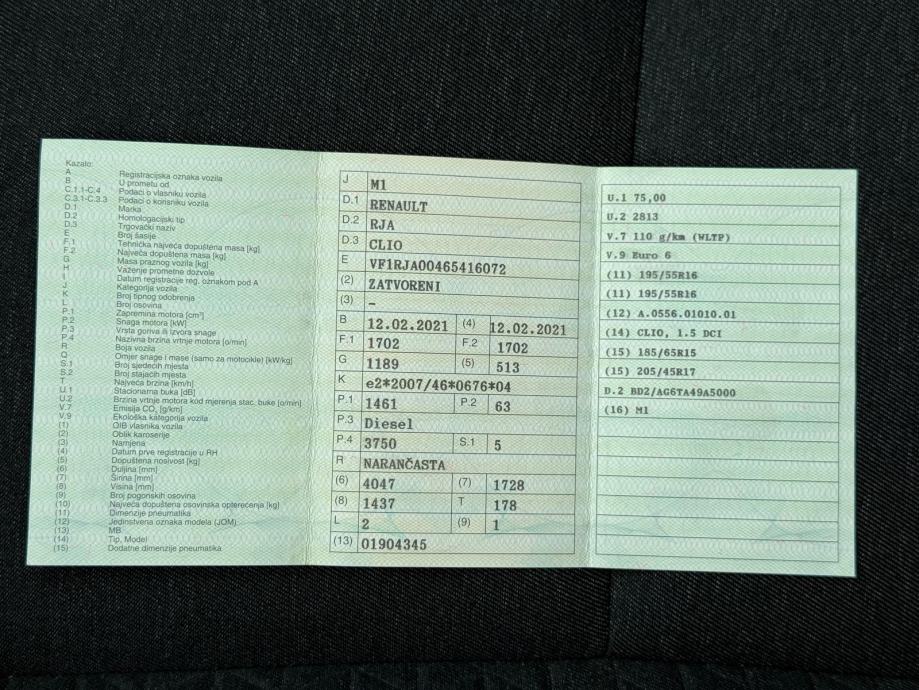 Kazalo:
A Registracijska oznaka vozila
B U prometu od
C.1.1-C.4 Podaci o vlasniku vozila
C.3.1-C.3.3 Podaci o korisniku vozila
D.1 Marka
D.2 Homologacijski tip
D.3 Trgovački naziv
E Broj šasije
F.1 Tehnička najveća dopuštena masa [kg]
F.2 Najveća dopuštena masa [kg]
G Masa praznog vozila [kg]
H Važenje prometne dozvole
I Datum registracije reg. oznakom pod A
J Kategorija vozila
K Broj tipnog odobrenja
L Broj osovina
P.1 Zapremina motora [cm³]
P.2 Snaga motora [kW]
P.3 Vrsta goriva ili izvora snage
P.4 Nazivna brzina vrtnje motora [o/min]
R Boja vozila
Q Omjer snage i mase (samo za motocikle) [kW/kg]
S.1 Broj sjedećih mjesta
S.2 Broj stajaćih mjesta
T Najveća brzina [km/h]
U.1 Stacionarna buka [dB]
U.2 Brzina vrtnje motora kod mjerenja stac. buke [o/min]
V.7 Emisija CO₂ [g/km]
V.9 Ekološka kategorija vozila
(1) OIB vlasnika vozila
(2) Oblik karoserije
(3) Namjena
(4) Datum prve registracije u RH
(5) Dopuštena nosivost [kg]
(6) Duljina [mm]
(7) Širina [mm]
(8) Visina [mm]
(9) Broj pogonskih osovina
(10) Najveća dopuštena osovinska opterećenja [kg]
(11) Dimenzije pneumatika
(12) Jedinstvena oznaka modela (JOM)
(13) MB
(14) Tip, Model
(15) Dodatne dimenzije pneumatika
J M1
D.1 RENAULT
D.2 RJA
D.3 CLIO
E VF1RJA00465416072
(2) ZATVORENI
(3) –
B 12.02.2021 (4) 12.02.2021
F.1 1702 F.2 1702
G 1189 (5) 513
K e2*2007/46*0676*04
P.1 1461 P.2 63
P.3 Diesel
P.4 3750 S.1 5
R NARANČASTA
(6) 4047 (7) 1728
(8) 1437 T 178
L 2 (9) 1
(13) 01904345
U.1 75,00
U.2 2813
V.7 110 g/km (WLTP)
V.9 Euro 6
(11) 195/55R16
(11) 195/55R16
(12) A.0556.01010.01
(14) CLIO, 1.5 DCI
(15) 185/65R15
(15) 205/45R17
D.2 BD2/AG6TA49A5000
(16) M1